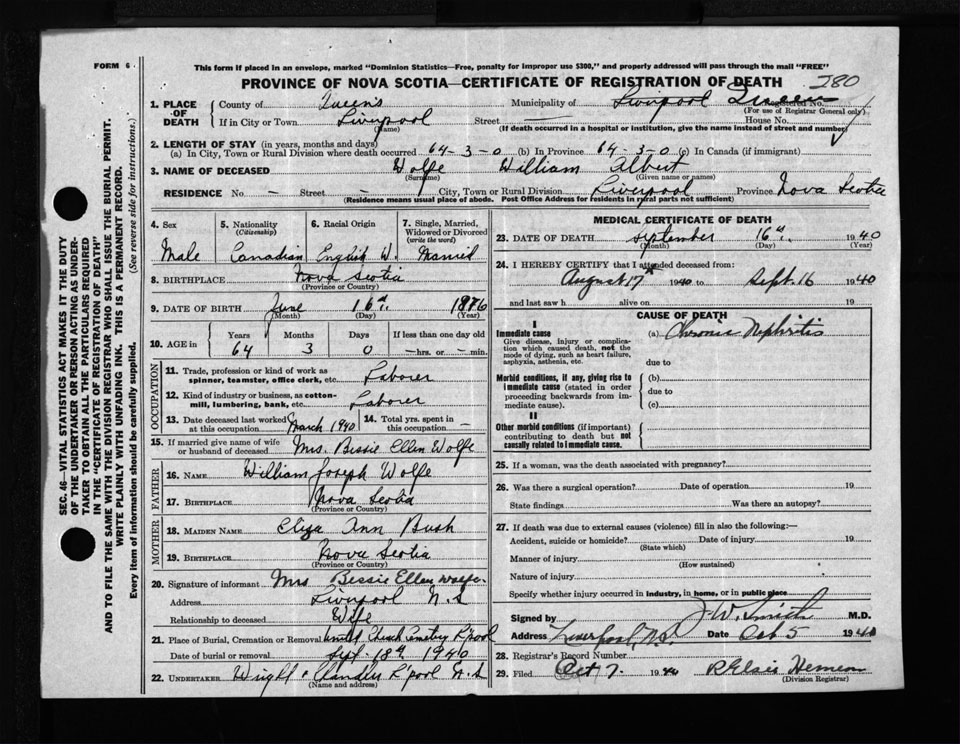 FORM 6
This form if placed in an envelope, marked "Dominion Statistics—Free, penalty for improper use $300," and property addressed will pass through the mail "FREE"
PROVINCE OF NOVA SCOTIA—CERTIFICATE OF REGISTRATION OF DEATH 280
1. PLACE OF DEATH
County of Queen's Municipality of Liverpool Queens Registered No.
(For use of Registrar General only)
If in City or Town Liverpool Street — House No.
(Name) (If death occurred in a hospital or institution, give the name instead of street and number)
2. LENGTH OF STAY (in years, months and days)
(a) In City, Town or Rural Division where death occurred 64-3-0 (b) In Province 64-3-0 (c) In Canada (if immigrant)
3. NAME OF DECEASED Wolfe William Albert
(Surname) (Given name or names)
RESIDENCE No. — Street — City, Town or Rural Division Liverpool Province Nova Scotia
(Residence means usual place of abode. Post Office Address for residents in rural parts not sufficient)
4. Sex 5. Nationality (Citizenship) 6. Racial Origin 7. Single, Married, Widowed or Divorced (write the word)
Male Canadian English W. Married
8. BIRTHPLACE Nova Scotia
(Province or Country)
9. DATE OF BIRTH June 16th. 1876
(Month) (Day) (Year)
10. AGE in Years Months Days If less than one day old
64 3 0 — hrs. or — min.
OCCUPATION
11. Trade, profession or kind of work as spinner, teamster, office clerk, etc. Laborer
12. Kind of industry or business, as cotton-mill, lumbering, bank, etc. Laborer
13. Date deceased last worked at this occupation March 1940 14. Total yrs. spent in this occupation —
15. If married give name of wife or husband of deceased Mrs. Bessie Ellen Wolfe
FATHER
16. NAME William Joseph Wolfe
17. BIRTHPLACE Nova Scotia
(Province or Country)
MOTHER
18. MAIDEN NAME Eliza Ann Bush
19. BIRTHPLACE Nova Scotia
(Province or Country)
20. Signature of informant Mrs Bessie Ellen Wolfe.
Address Liverpool N.S
Relationship to deceased Wife
21. Place of Burial, Cremation or Removal United Church Cemetery L'pool
Date of burial or removal Sept. 18th 1940
22. UNDERTAKER Wright & Chandler L'pool N.S
(Name and address)
MEDICAL CERTIFICATE OF DEATH
23. DATE OF DEATH September 16th. 1940
(Month) (Day) (Year)
24. I HEREBY CERTIFY that I attended deceased from:
August 17th 1940 to Sept. 16 1940
and last saw h alive on 19
CAUSE OF DEATH
I
Immediate cause (a) Chronic Nephritis
Give disease, injury or complication which caused death, not the mode of dying, such as heart failure, asphyxia, asthenia, etc.
due to
Morbid conditions, if any, giving rise to immediate cause (stated in order proceeding backwards from immediate cause).
(b)
due to
(c)
II
Other morbid conditions (if important) contributing to death but not causally related to immediate cause.
25. If a woman, was the death associated with pregnancy?
26. Was there a surgical operation? Date of operation 19
State findings Was there an autopsy?
27. If death was due to external causes (violence) fill in also the following:—
Accident, suicide or homicide? Date of injury 19
(State which)
Manner of injury
(How sustained)
Nature of injury
Specify whether injury occurred in industry, in home, or in public place
Signed by J. W. Smith M.D.
Address Liverpool, N.S. Date Oct 5 1940
28. Registrar's Record Number
29. Filed Oct 7. 1940 R Elsie Hemeon
(Division Registrar)
SEC. 46—VITAL STATISTICS ACT MAKES IT THE DUTY
OF THE UNDERTAKER OR PERSON ACTING AS UNDER-
TAKER TO OBTAIN ALL THE PARTICULARS REQUIRED
IN THE "CERTIFICATE OF REGISTRATION OF DEATH"
AND TO FILE THE SAME WITH THE DIVISION REGISTRAR WHO SHALL ISSUE THE BURIAL PERMIT.
WRITE PLAINLY WITH UNFADING INK. THIS IS A PERMANENT RECORD.
Every item of information should be carefully supplied. (See reverse side for instructions.)